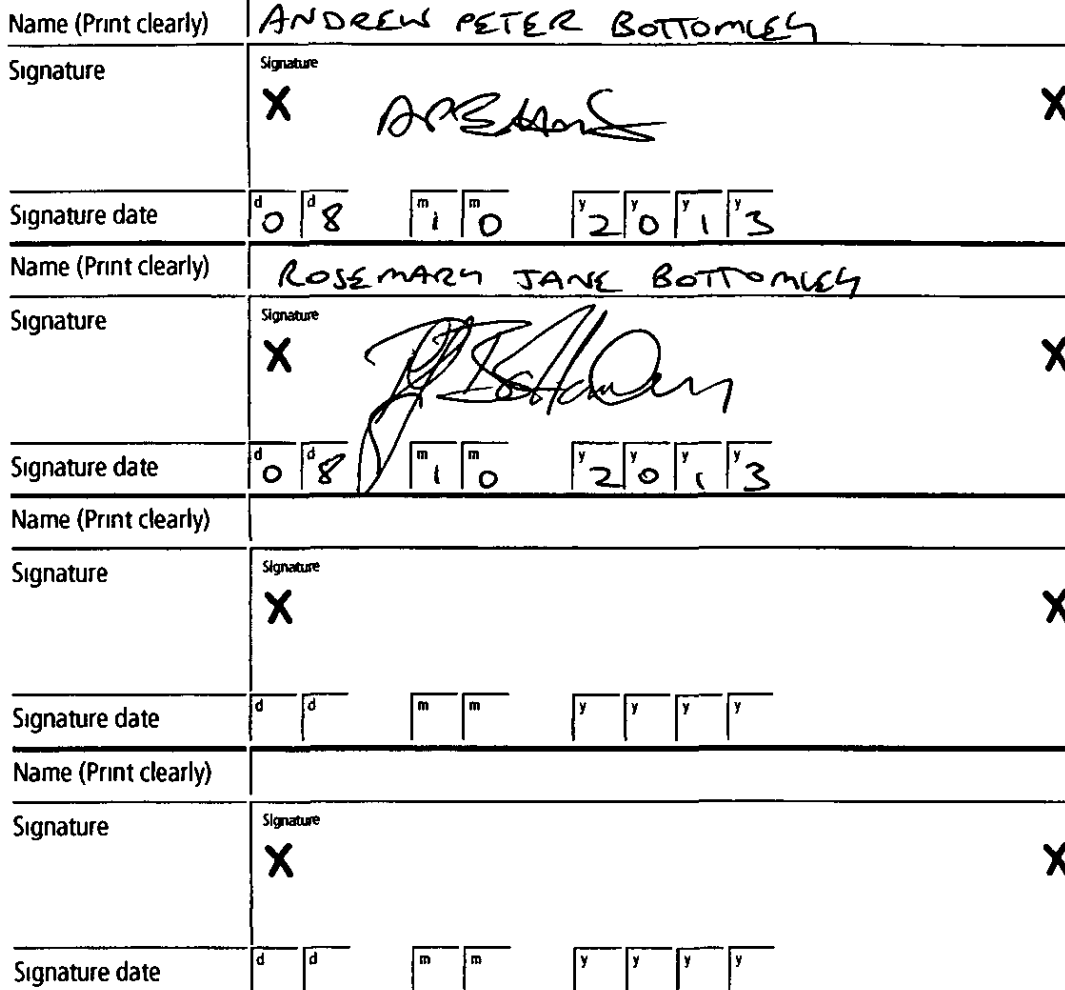 Name (Print clearly) ANDREW PETER BOTTOMLEY
Signature Signature
X X
Signature date d0 d8 m1 m0 y2 y0 y1 y3
Name (Print clearly) ROSEMARY JANE BOTTOMLEY
Signature Signature
X RJBottomley X
Signature date d0 d8 m1 m0 y2 y0 y1 y3
Name (Print clearly)
Signature Signature
X X
Signature date d d m m y y y y
Name (Print clearly)
Signature Signature
X X
Signature date d d m m y y y y